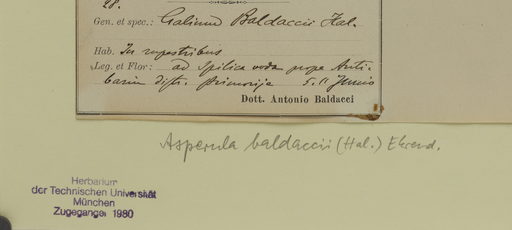 28.
Gen. et spec.: Galium Baldaccii Hal.
Hab. In rupestribus
Leg. et Flor: ad Spilica voda prope Anti-
barim distr. Primorija 5. 11 Junio
Dott. Antonio Baldacci
Asperula baldaccii (Hal.) Ehrend.
Herbarium
der Technischen Universität
München
Zugegangen 1980